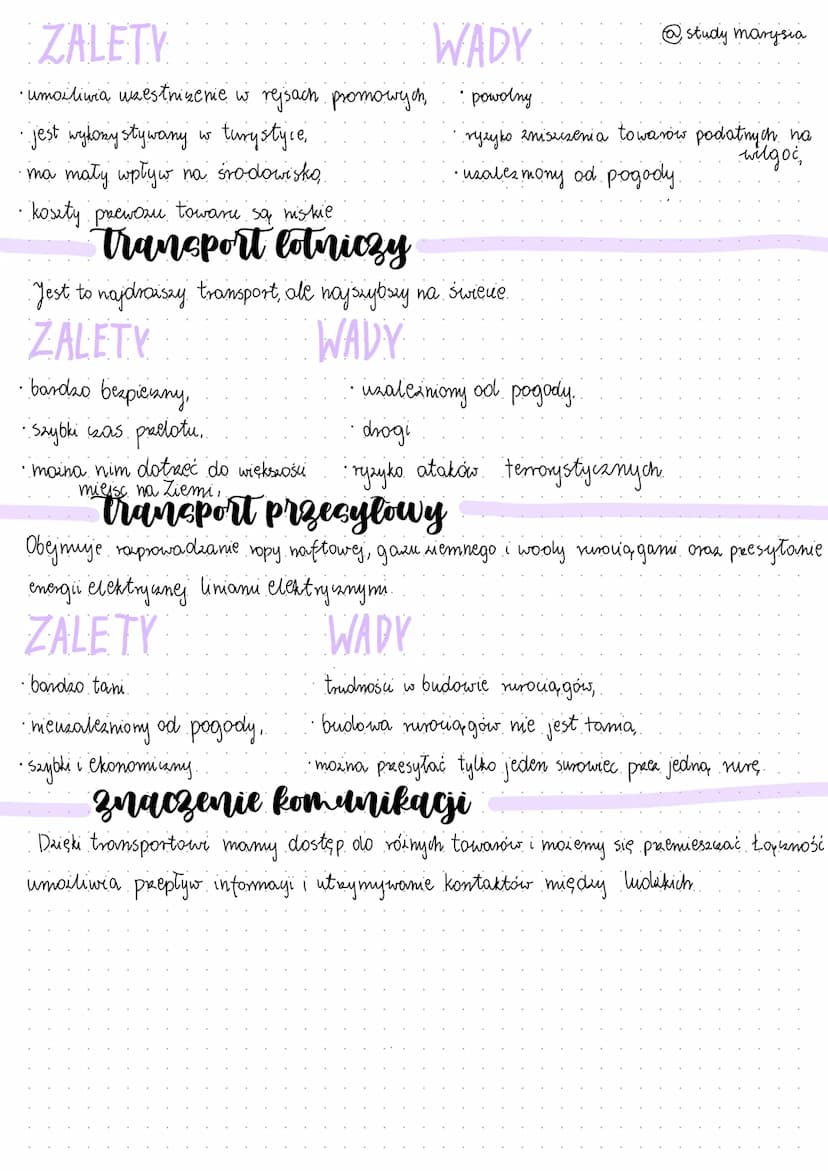 @study marysia
ZALETY
· umożliwia uczestniczenie w rejsach promowych,
· jest wykorzystywany w turystyce,
· ma mały wpływ na środowisko,
· koszty przewozu towaru są niskie
WADY
· powolny
· ryzyko zniszczenia towarów podatnych na
wilgoć,
· uzależniony od pogody
transport lotniczy
Jest to najdroższy transport, ale najszybszy na świecie.
ZALETY
· bardzo bezpieczny,
· szybki czas przelotu,
· można nim dotrzeć do większości
miejsc na Ziemi,
WADY
· uzależniony od pogody,
· drogi
· ryzyko ataków terrorystycznych
transport przesyłowy
Obejmuje rozprowadzanie ropy naftowej, gazu ziemnego i wody rurociągami oraz przesyłanie
energii elektrycznej liniami elektrycznymi.
ZALETY
· bardzo tani
· nieuzależniony od pogody,
· szybki i ekonomiczny
WADY
trudności w budowie rurociągów,
· budowa rurociągów nie jest tania,
· można przesyłać tylko jeden surowiec przez jedną rurę
znaczenie komunikacji
Dzięki transportowi mamy dostęp do różnych towarów i możemy się przemieszczać. Łączność
umożliwia przepływ informacji i utrzymywanie kontaktów między ludzkich.